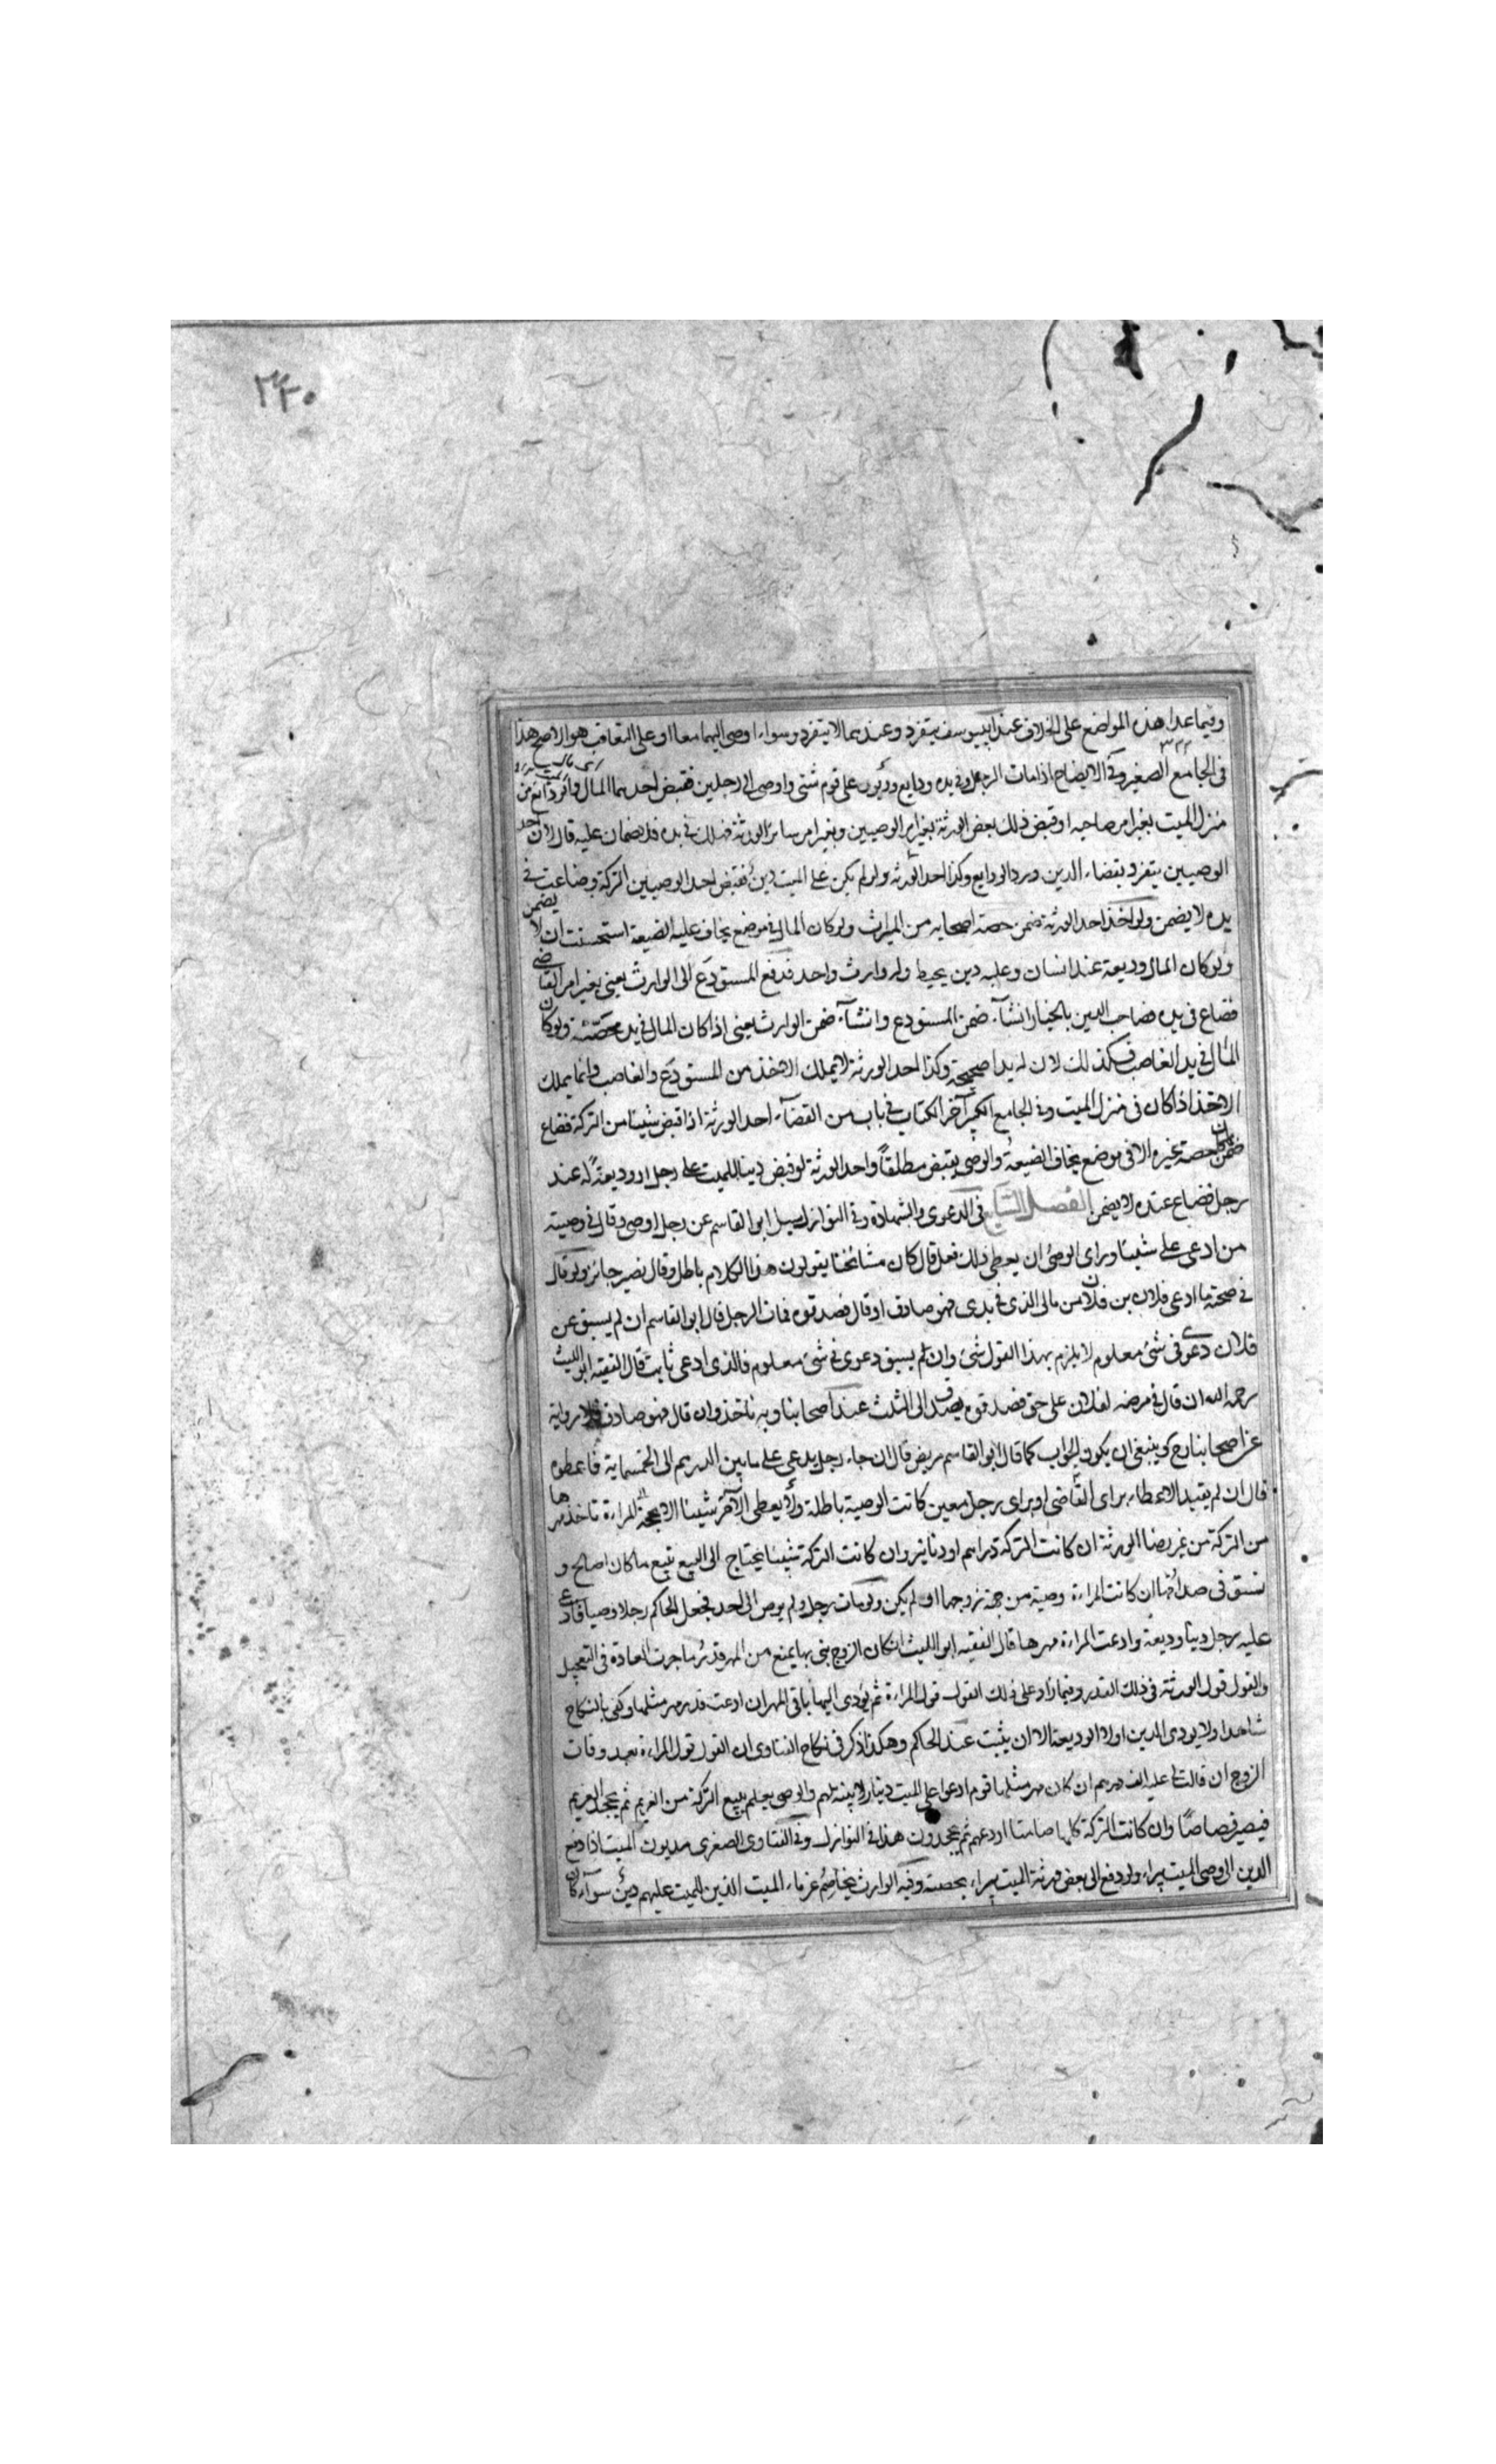 ٣٣٥
وفيما عدا هذه المواضع على الخلاف عند ابييوسف يتفرد وعندهما لا يتفرد وسواء اوصى اليهما معا او على التعاقب هو الاصح هذا
فى الجامع الصغير وفى الايضاح اذا مات الرجل وفى يده ودايع وديون على قوم شتى واوصى الى رجلين فقبض احدهما المال من
منزل الميت بغير امر صاحبه او قبض ذلك بعض الورثة بغير امر الوصيين وبغير امر سائر الورثة فهلك فى يده فلا ضمان عليه قال لان احد
الوصيين يتفرد بقضاء الدين ورد الودايع وكذا احد الورثة ولو لم يكن على الميت دين فقبض احد الوصيين التركة وضاعت فى
يده لا يضمن ولو اخذ احد الورثة ضمن حصة اصحابه من الميراث ولو كان المال فى موضع يخاف عليه الضيعة استحسنت ان لا يضمن
ولو كان المال وديعة عند انسان وعليه دين يحيط وله وارث واحد فدفع المستودع الى الوارث يعنى بغير امر القاضى
فضاع فى يده فصاحب الدين بالخيار ان شآء ضمن المستودع وان شآء ضمن الوارث يعنى اذا كان المال فى يد ولو كان
المال فى يد الغاصب فكذلك لان له يدا صحيحة وكذا احد الورثة لا يملك الاخذ من المستودع والغاصب وانما يملك
الاخذ اذا كان فى منزل الميت وفى الجامع الكبير آخر الكتاب فى باب من القضآء احد الورثة اذا قبض شيئا من التركة فضاع
ضمن حصة غيره الا فى موضع يخاف الضيعة والوصى يقبض مطلقاً واحد الورثة لو قبض دينا للميت على رجل او وديعةً له عند
رجل فضاع عنده لا يضمن الفصل السابع فى الدعوى والشهادة وفى النوازل سيل ابو القاسم عن رجل اوصى وقال فى وصيته
من ادعى على شيئا وراى الوصى ان يعطى ذلك فعل قال كان مشائخنا يقولون هذا الكلام باطل وقال نصير جائز ولو قال
فى صحته ما ادعى فلان بن فلان من مالى الذى فى يدى فهو صادق او قال فصدقوه فمات الرجل قال ابو القاسم ان لم يسبق عن
فلان دعوى فى شئ معلوم لا يلزم بهذا القول شئ وان لم يسبق دعوى فى شئ معلوم فالذى ادعى ثابت قال الفقيه ابو الليث
رحمه الله ان قال فى مرضه لفلان على حق فصدقوه يصدق الى الثلث عند اصحابنا وبه ناخذ وان قال فهو صادق رواية
عن اصحابنا رح وينبغى ان يكون الجواب كما قال ابو القاسم مريض قال ان جاء رجل يدعى على مابين الدرهم الى الخمسماية فاعطوه
قال ان لم يقيد الاعطاء براى القاضى او براى رجل معين كانت الوصية باطلة ولا يعطى شيئا الا المراءة تاخذ مهرها
من التركة من غير رضا الورثة ان كانت التركة دراهم او دنانير وان كانت التركة شيئا يحتاج الى البيع تبيع ما كان اصلح و
تستوفى صداقها ان كانت المراءة وصية من جهة زوجها او لم يكن ولو مات رجل ولم يوص الى احد فجعل الحاكم رجلا وصيا فادعى
عليه رجل دينا وديعة وادعت المراءة مهرها قال الفقيه ابو الليث انكان الزوج بنى بها يمنع من المهر قدر ما جرت العادة فى التعجيل
والقول قول الورثة فى ذلك القدر وفيما زاد على ذلك القول قول المراءة ثم يؤدى اليها باقى المهر ان ادعت قدر مهر مثلها وكفى بالنكاح
شاهدا ولا يودى الدين اولا الوديعة الا ان يثبت عند الحاكم وهكذا ذكر فى نكاح الفتاوى ان القول قول المراءة بعد وفات
الزوج ان قالت لى عليه الف درهم ان كان مهر مثلها قوم ادعوا على الميت دينار لا بينة لهم والوصى يعلم يبيع التركة من الغريم ثم يجحد الغريم
فيصير قصاصًا وان كانت التركة كلها صامتا اودعهم ثم يجحدون هذا فى النوازل وفى الفتاوى الصغرى مديون الميت اذا دفع
الدين الى وصى الميت يبراء ولو دفع الى بعض ورثة الميت يبراء بحصته وفيه الوارث يخاصم غرماء الميت الذين للميت عليهم دين سوآء كان